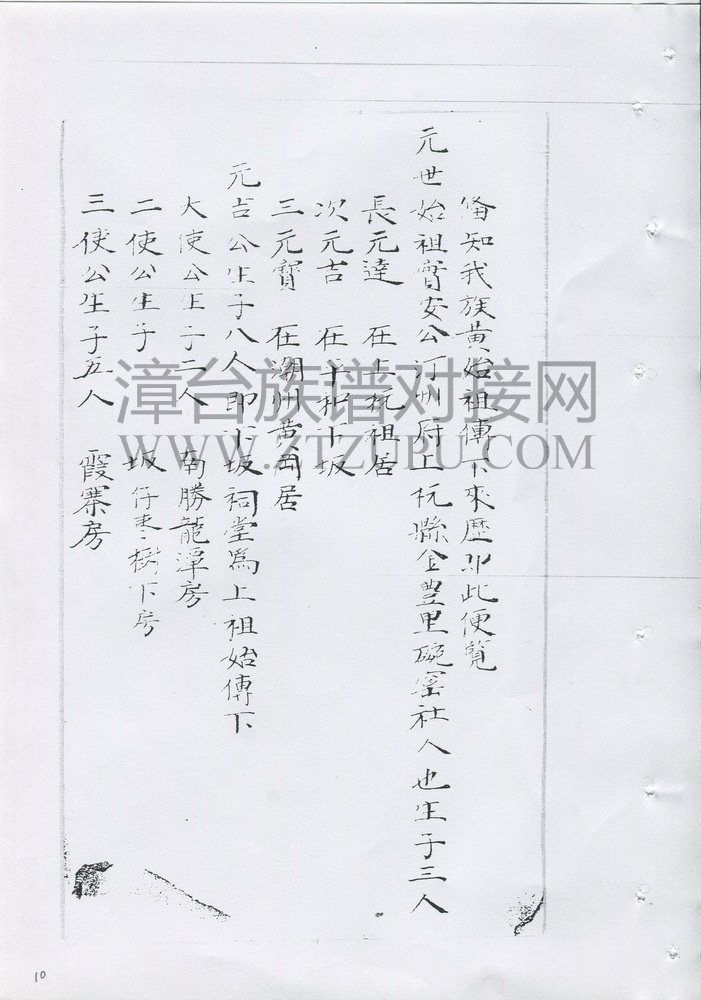 偹知我族黄始祖傳下來歷即此便覽
元世始祖寳安公汀州府上杭縣金豐里碗窰社人也生子三人
長元達 在上杭祖居
次元吉 在平和下坂
三元寶 在潮州黄岡居
元吉公生子八人即下坂祠堂爲上祖始傳下
大使公生子二人 南勝龍潭房
二使公生子 坂仔枣樹下房
三使公生子五人 霞寨房
漳台族谱对接网
WWW.ZTZUPU.COM
10